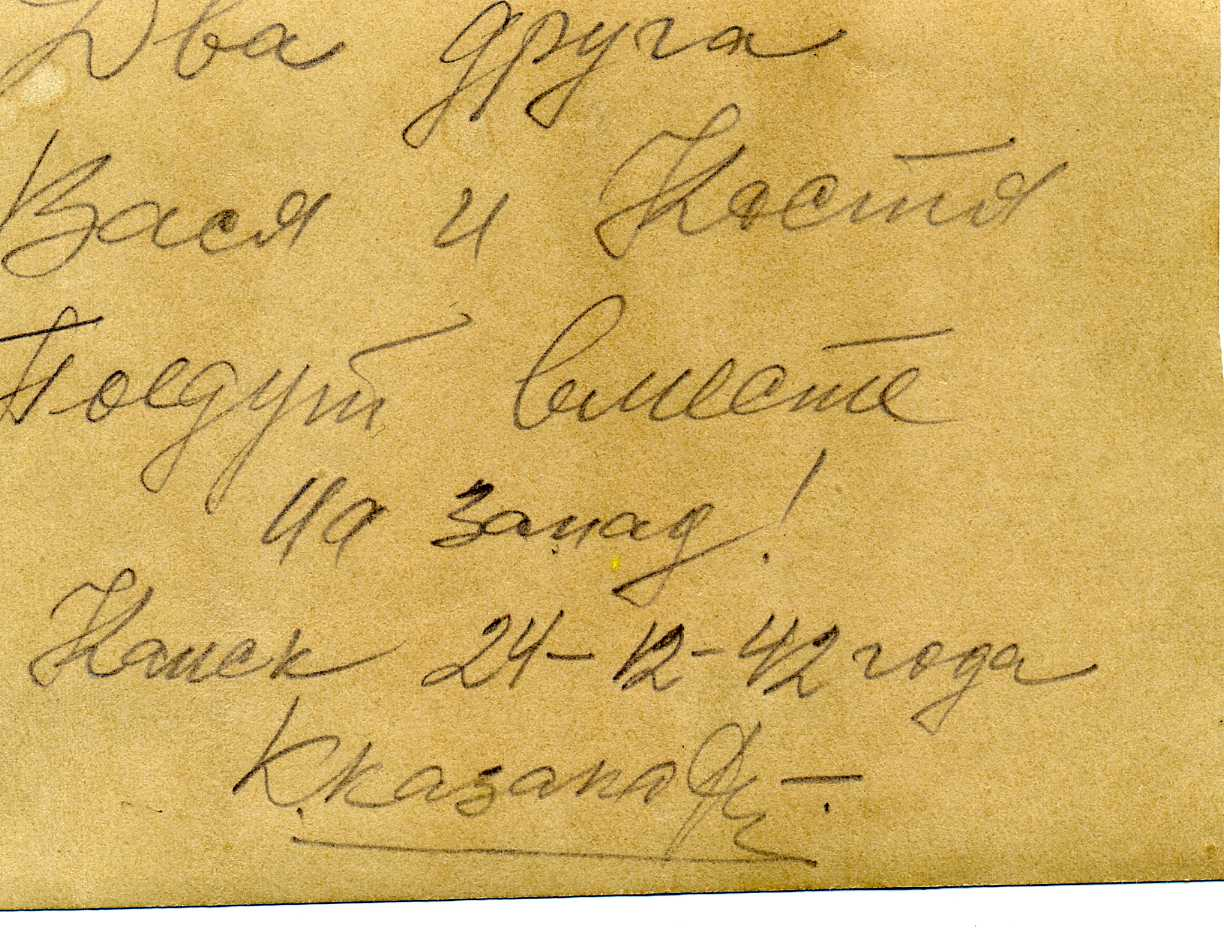 Два друга
Вася и Костя
Поедут вместе
на запад!
Канск 24-12-42 года